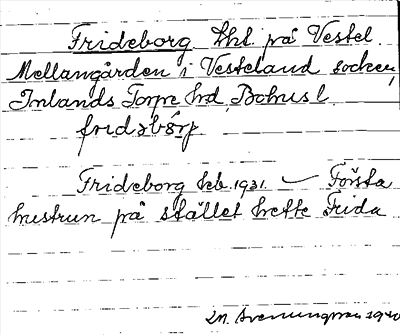 Frideborg lht. på Vestel.
Mellangården i Vesteland socken,
Inlands Torpe hd, Bohusl.
fridsbórj
Frideborg lb. 1931. — Första
hustrun på stället hette Frida